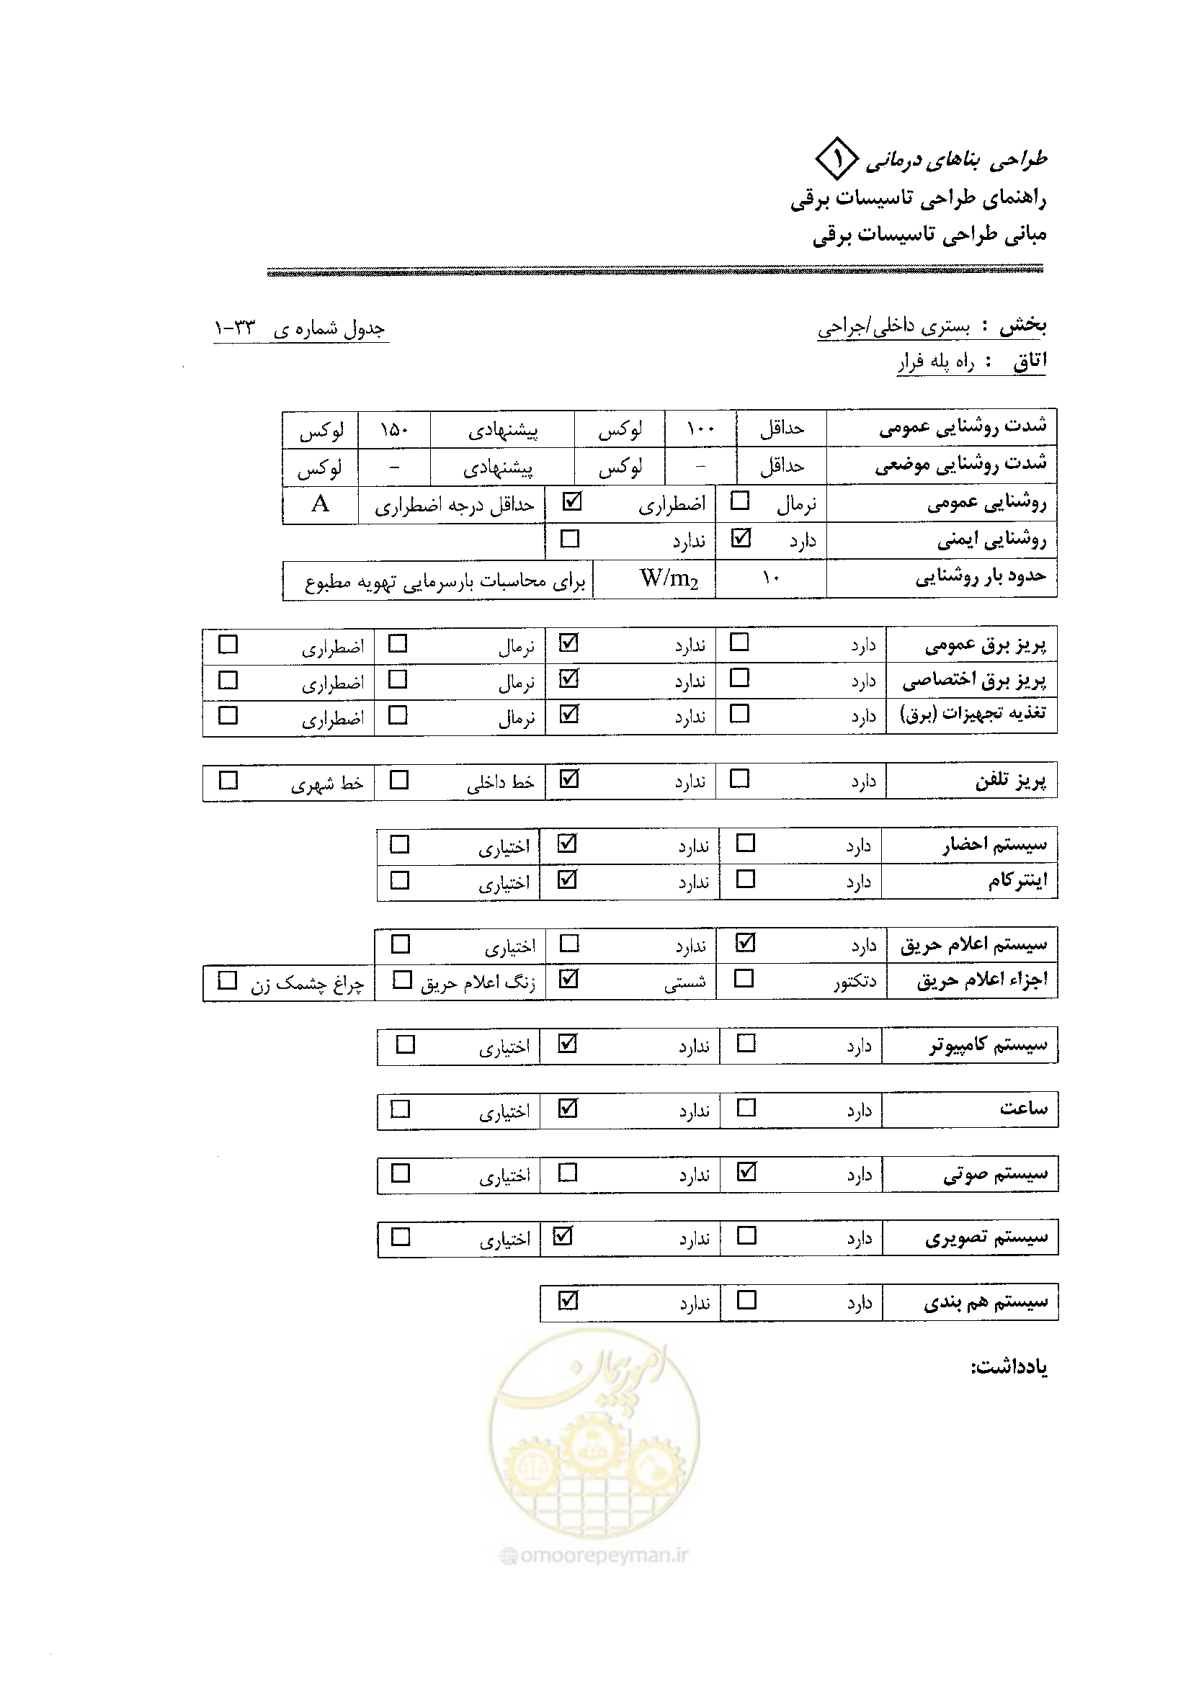 طراحی بناهای درمانی ۱
راهنمای طراحی تاسیسات برقی
مبانی طراحی تاسیسات برقی
بخش : بستری داخلی/جراحی جدول شماره ی ۳۳-۱
اتاق : راه پله فرار
شدت روشنایی عمومی حداقل ۱۰۰ لوکس پیشنهادی ۱۵۰ لوکس
شدت روشنایی موضعی حداقل - لوکس پیشنهادی - لوکس
روشنایی عمومی نرمال ☐ اضطراری ☑ حداقل درجه اضطراری A
روشنایی ایمنی دارد ☑ ندارد ☐
حدود بار روشنایی ۱۰ W/m2 برای محاسبات بارسرمایی تهویه مطبوع
پریز برق عمومی دارد ☐ ندارد ☑ نرمال ☐ اضطراری ☐
پریز برق اختصاصی دارد ☐ ندارد ☑ نرمال ☐ اضطراری ☐
تغذیه تجهیزات (برق) دارد ☐ ندارد ☑ نرمال ☐ اضطراری ☐
پریز تلفن دارد ☐ ندارد ☑ خط داخلی ☐ خط شهری ☐
سیستم احضار دارد ☐ ندارد ☑ اختیاری ☐
اینترکام دارد ☐ ندارد ☑ اختیاری ☐
سیستم اعلام حریق دارد ☑ ندارد ☐ اختیاری ☐
اجزاء اعلام حریق دتکتور ☐ شستی ☑ زنگ اعلام حریق ☐ چراغ چشمک زن ☐
سیستم کامپیوتر دارد ☐ ندارد ☑ اختیاری ☐
ساعت دارد ☐ ندارد ☑ اختیاری ☐
سیستم صوتی دارد ☑ ندارد ☐ اختیاری ☐
سیستم تصویری دارد ☐ ندارد ☑ اختیاری ☐
سیستم هم بندی دارد ☐ ندارد ☑
یادداشت:
امور پیمان
@omoorepeyman.ir